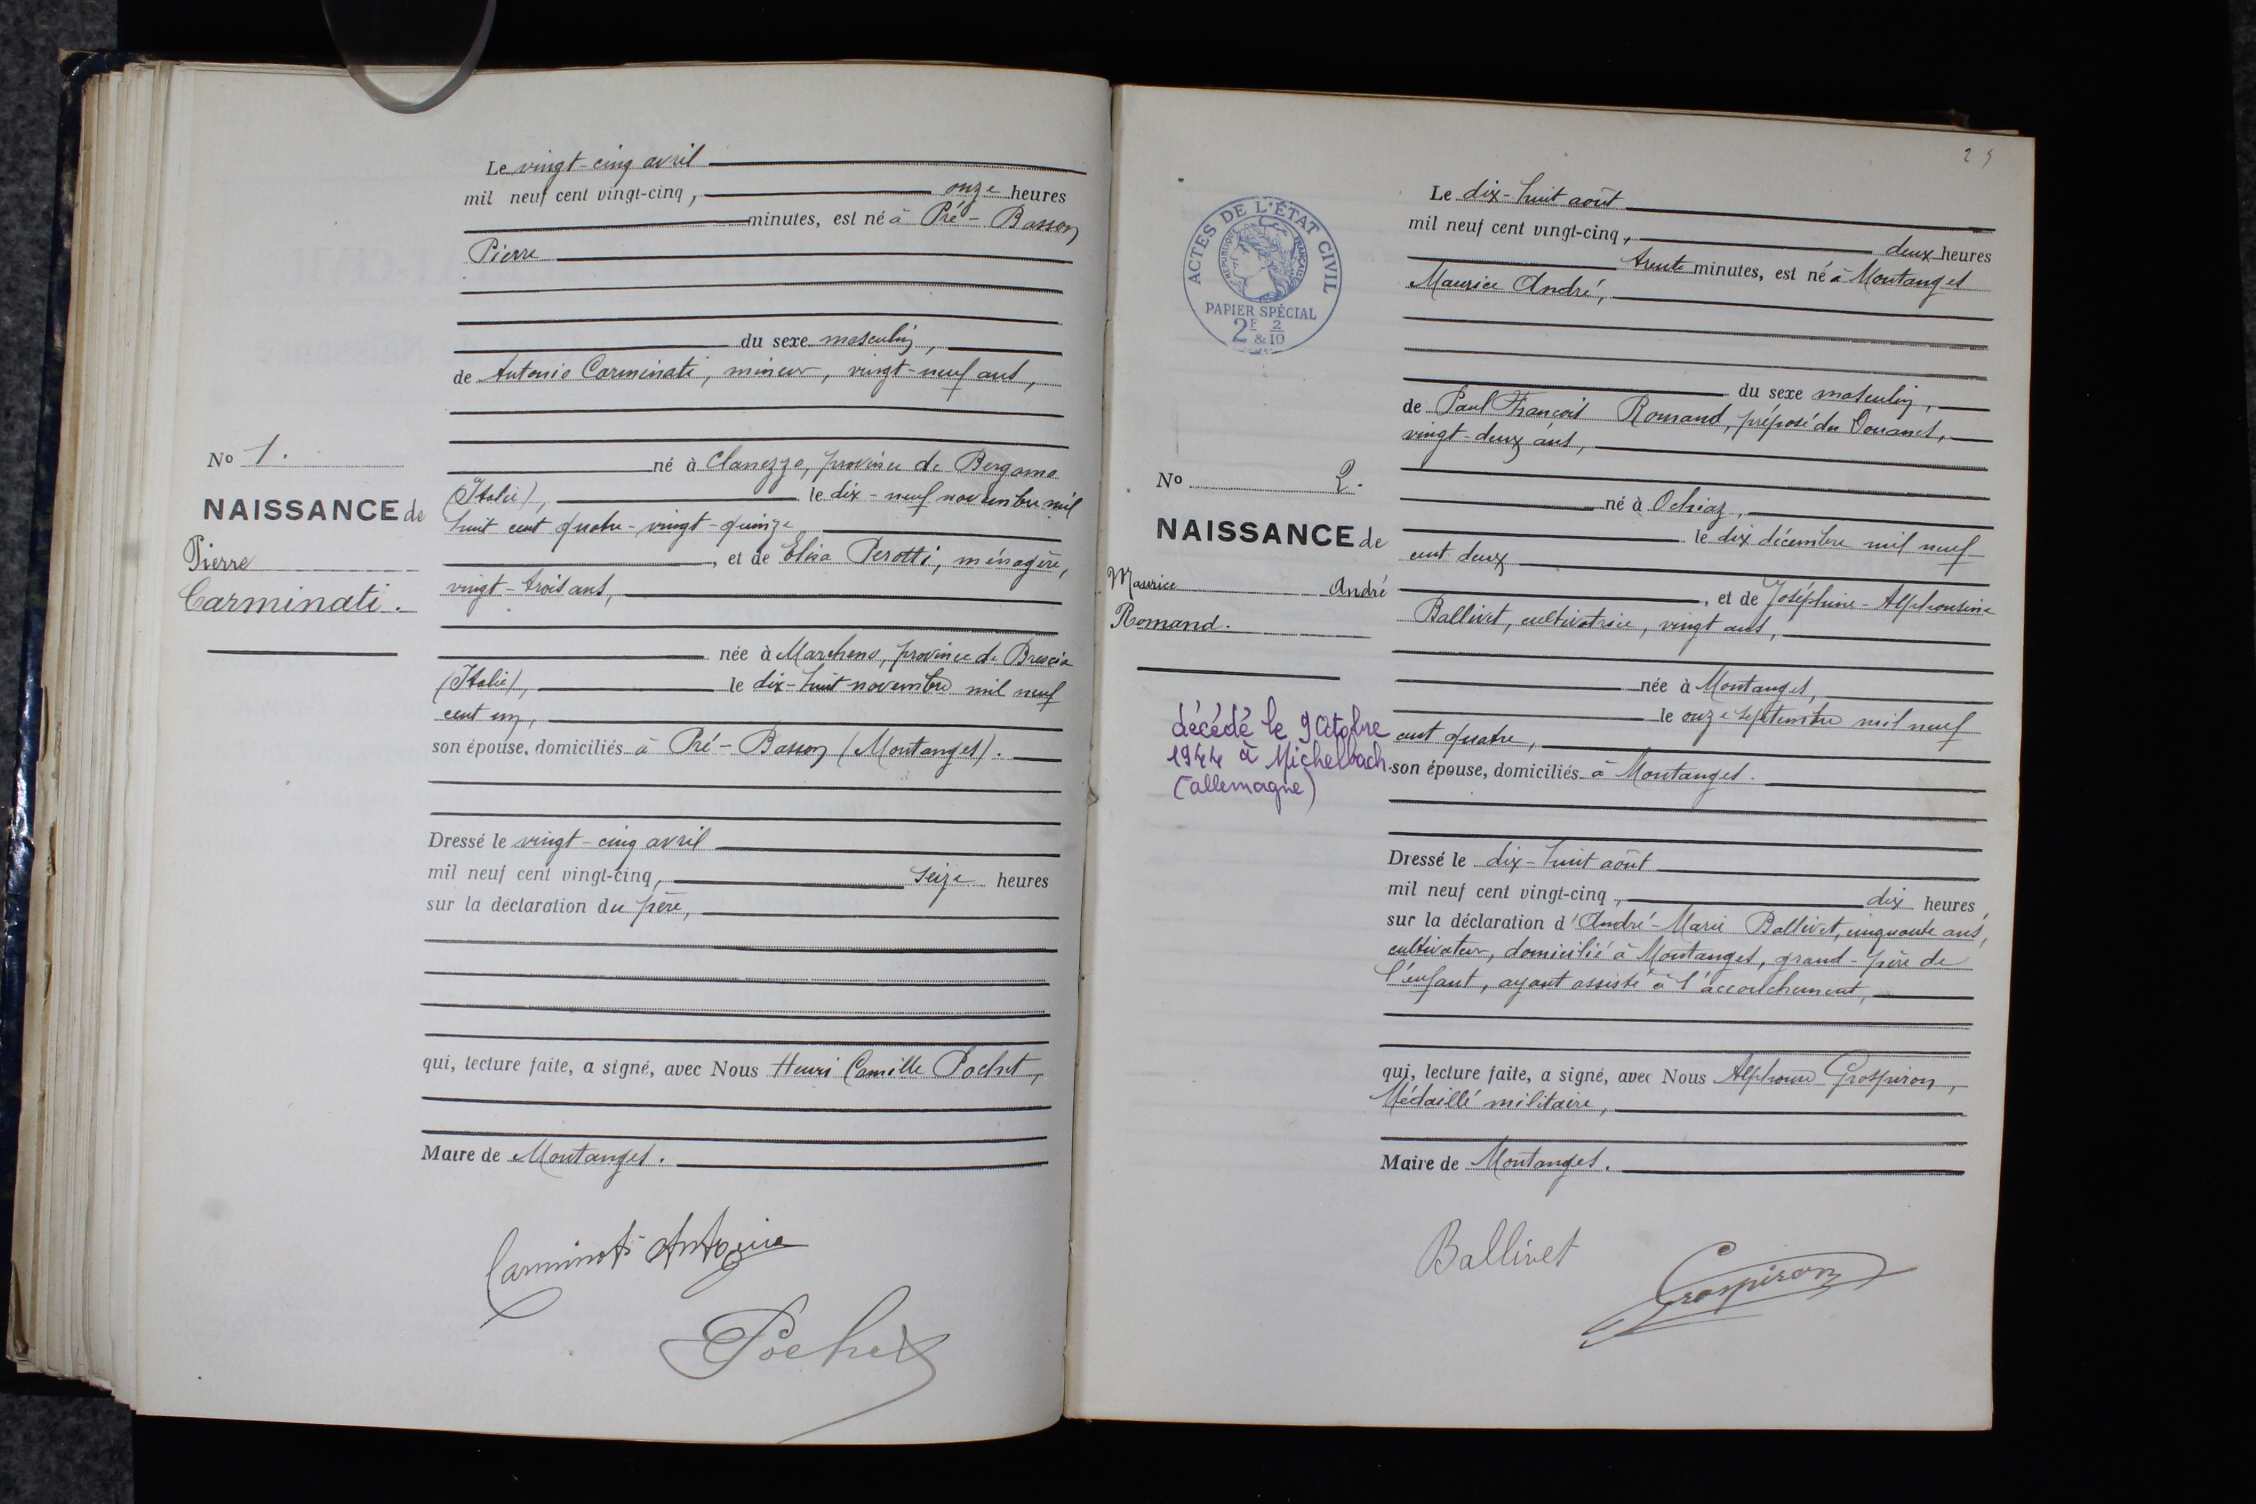 Le vingt-cinq avril
mil neuf cent vingt-cinq, onze heures
minutes, est né à Pré-Basson
Pierre
du sexe masculin,
de Antonio Carminati, mineur, vingt-neuf ans,
né à Clanezzo, province de Bergamo
(Italie), le dix-neuf novembre mil
huit cent quatre-vingt-quinze
, et de Elisa Perotti, ménagère,
vingt-trois ans,
née à Marcheno, province de Brescia
(Italie), le dix-huit novembre mil neuf
cent un,
son épouse, domiciliés à Pré-Basson (Montanges).
Dressé le vingt-cinq avril
mil neuf cent vingt-cinq, seize heures
sur la déclaration du père,
qui, lecture faite, a signé, avec Nous Henri Camille Pochet,
Maire de Montanges.
No 1.
NAISSANCE de
Pierre
Carminati.
Carminati Antonio
Pochet
25
ACTES DE L'ÉTAT CIVIL
RÉPUBLIQUE FRANÇAISE
PAPIER SPÉCIAL
2F & 2/10
Le dix-huit août
mil neuf cent vingt-cinq, deux heures
trente minutes, est né à Montanges
Maurice André,
du sexe masculin,
de Paul François Romand, préposé des Douanes,
vingt-deux ans,
né à Ochiaz,
le dix décembre mil neuf
cent deux
, et de Joséphine-Alphonsine
Ballivet, cultivatrice, vingt ans,
née à Montanges,
le onze septembre mil neuf
cent quatre,
son épouse, domiciliés à Montanges.
Dressé le dix-huit août
mil neuf cent vingt-cinq, dix heures,
sur la déclaration d'André-Marie Ballivet, cinquante ans,
cultivateur, domicilié à Montanges, grand-père de
l'enfant, ayant assisté à l'accouchement,
qui, lecture faite, a signé, avec Nous Alphonse Grospiron,
Médaillé militaire,
Maire de Montanges.
No 2.
NAISSANCE de
Maurice André
Romand.
décédé le 9 Octobre
1944 à Michelbach.
(allemagne)
Ballivet
Grospiron